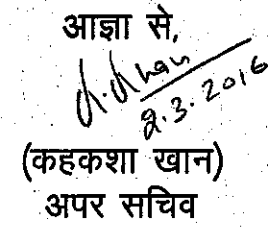 आज्ञा से,
K. Khan
2.3.2016
(कहकशा खान)
अपर सचिव